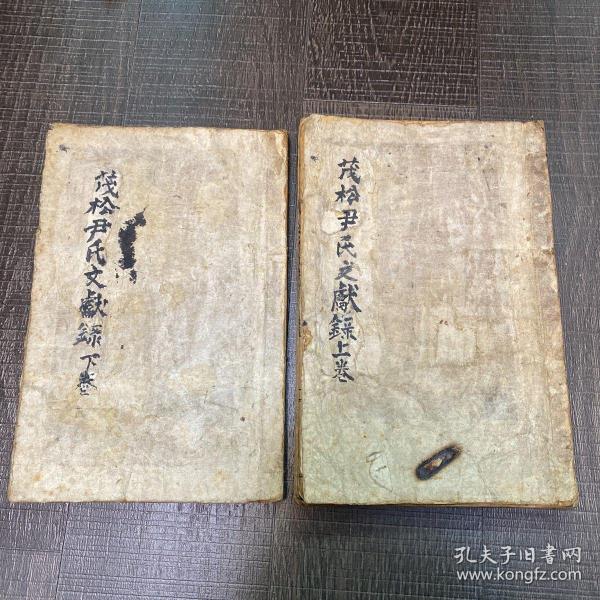 茂松尹氏文獻錄上卷
茂松尹氏文獻錄下卷
孔夫子旧書网
www.kongfz.com